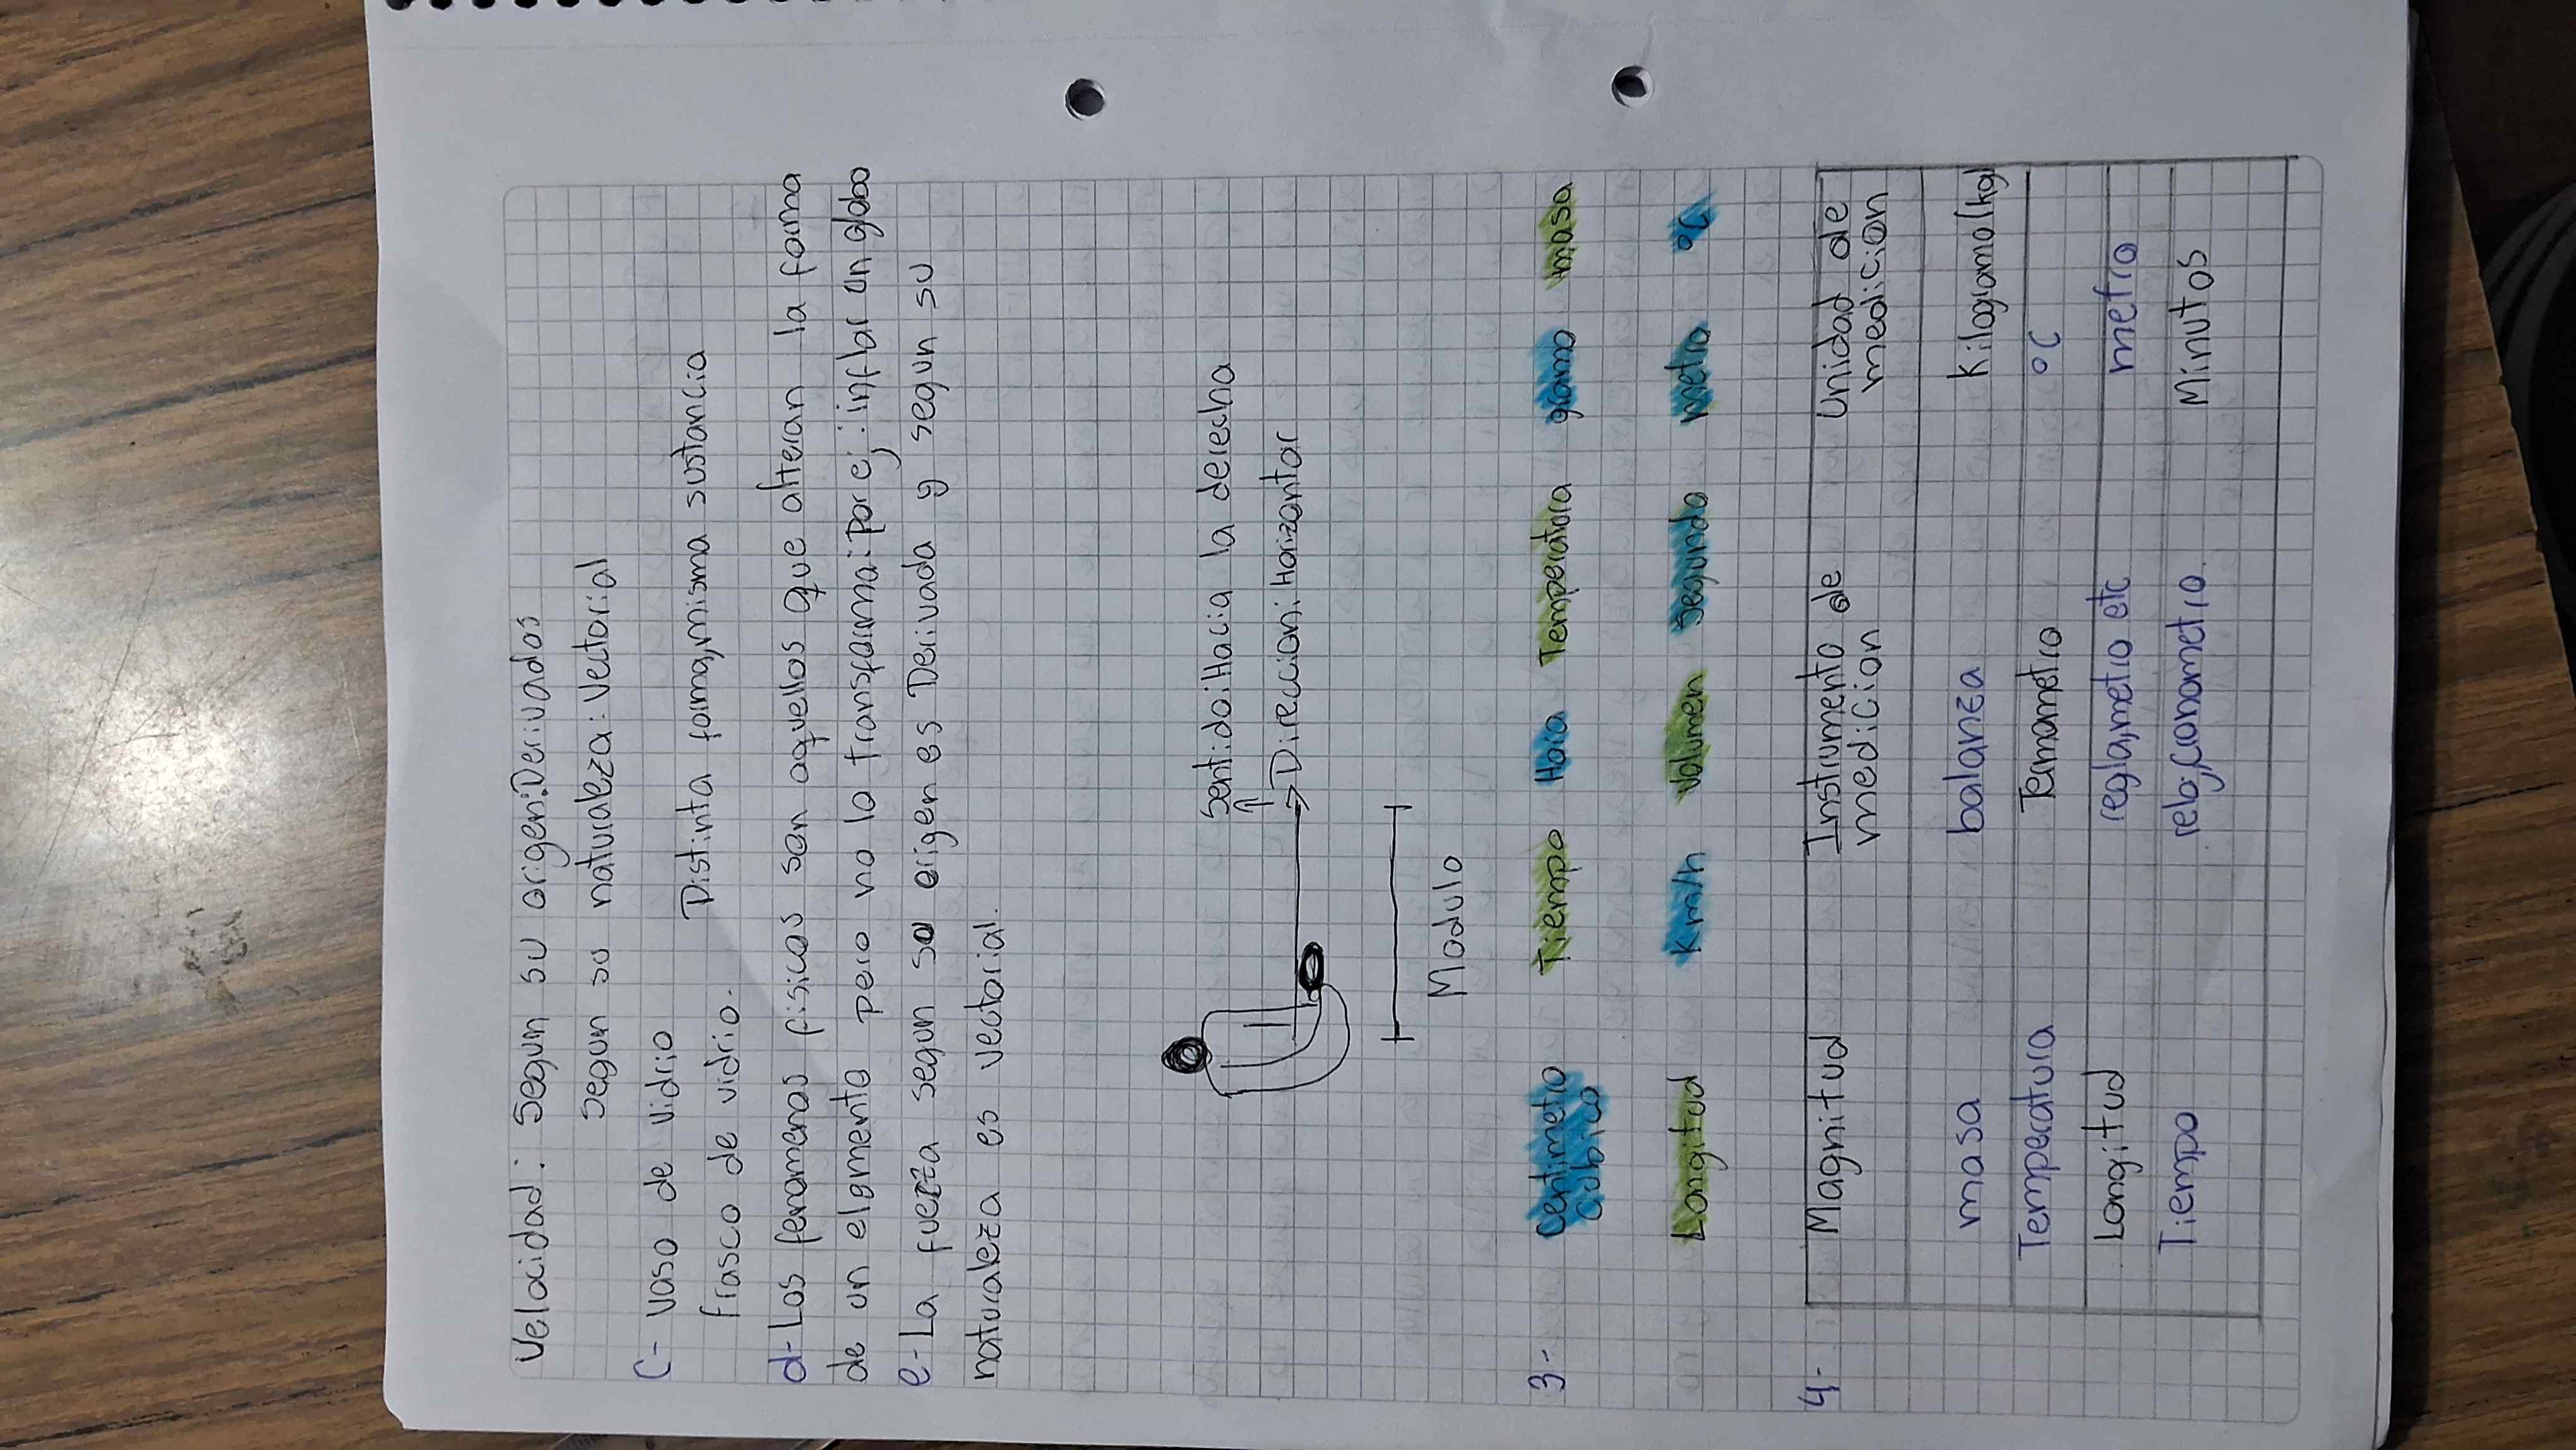 Velocidad: segun su origen: Derivados
segun su naturaleza: Vectorial
C- vaso de vidrio
Distinta forma, misma sustancia
frasco de vidrio.
d- Los fenomenos fisicos son aquellos que alteran la forma
de un elemento pero no la transforma: por ej: inflar un globo
e- La fuerza segun su origen es Derivada y segun su
naturaleza es vectorial.
Sentido: Hacia la derecha
Direccion: Horizontar
Modulo
3- centimetro cubico Tiempo Hora Temperatura gramo masa
Longitud Km/h Volumen Segundo metro °C
4- Magnitud Instrumento de medicion Unidad de medicion
masa balanza Kilogramo (kg)
Temperatura Termometro °C
Longitud regla, metro etc metro
Tiempo reloj, cronometro. Minutos